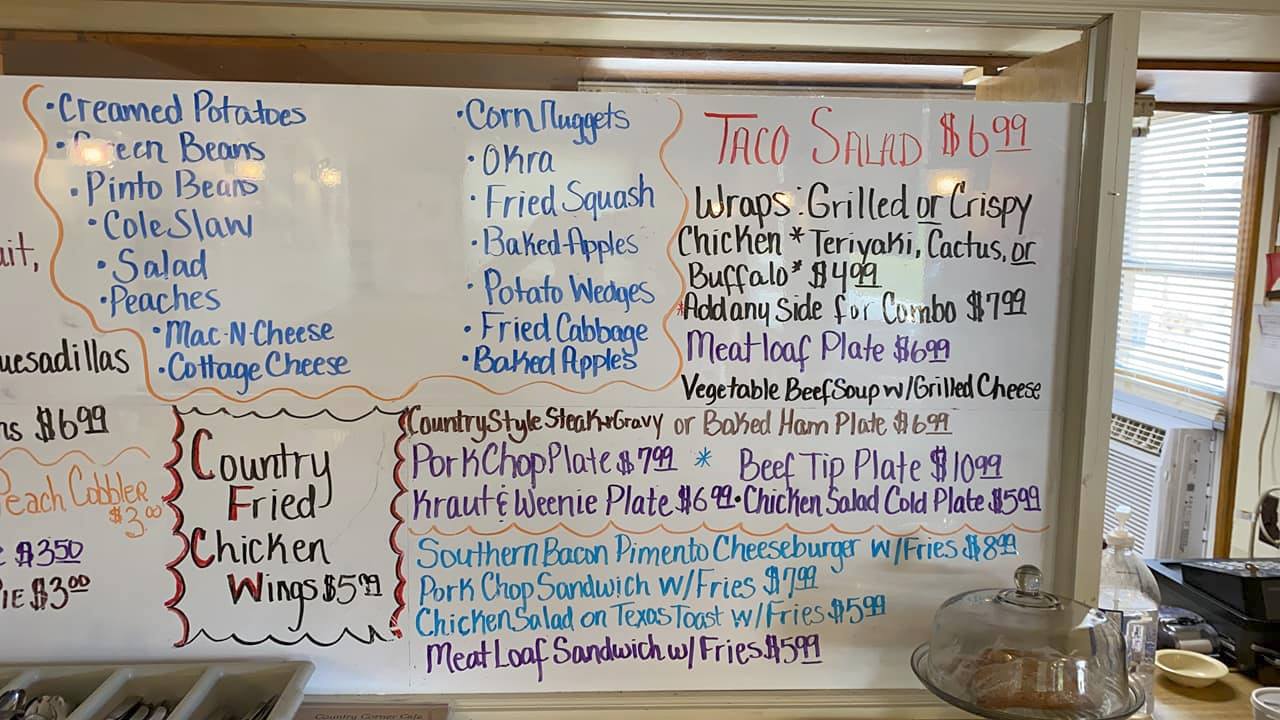 •Creamed Potatoes
•Green Beans
•Pinto Beans
•Cole Slaw
•Salad
•Peaches
•Mac-N-Cheese
•Cottage Cheese
•Corn Nuggets
•Okra
•Fried Squash
•Baked Apples
•Potato Wedges
•Fried Cabbage
•Baked Apples
Taco Salad $6.99
Wraps: Grilled or Crispy
Chicken * Teriyaki, Cactus, or
Buffalo * $4.99
*Add any Side for Combo $7.99
Meatloaf Plate $6.99
Vegetable Beef Soup w/Grilled Cheese
$6.99
Peach Cobbler
$3.00
$3.50
Pie $3.00
Country
Fried
Chicken
Wings $5.99
Country Style Steak & Gravy or Baked Ham Plate $6.99
Pork Chop Plate $7.99 * Beef Tip Plate $10.99
Kraut & Weenie Plate $6.99 • Chicken Salad Cold Plate $5.99
Southern Bacon Pimento Cheeseburger w/Fries $8.99
Pork Chop Sandwich w/Fries $7.99
Chicken Salad on Texas Toast w/Fries $5.99
Meat Loaf Sandwich w/Fries $5.99
Country Corner Cafe